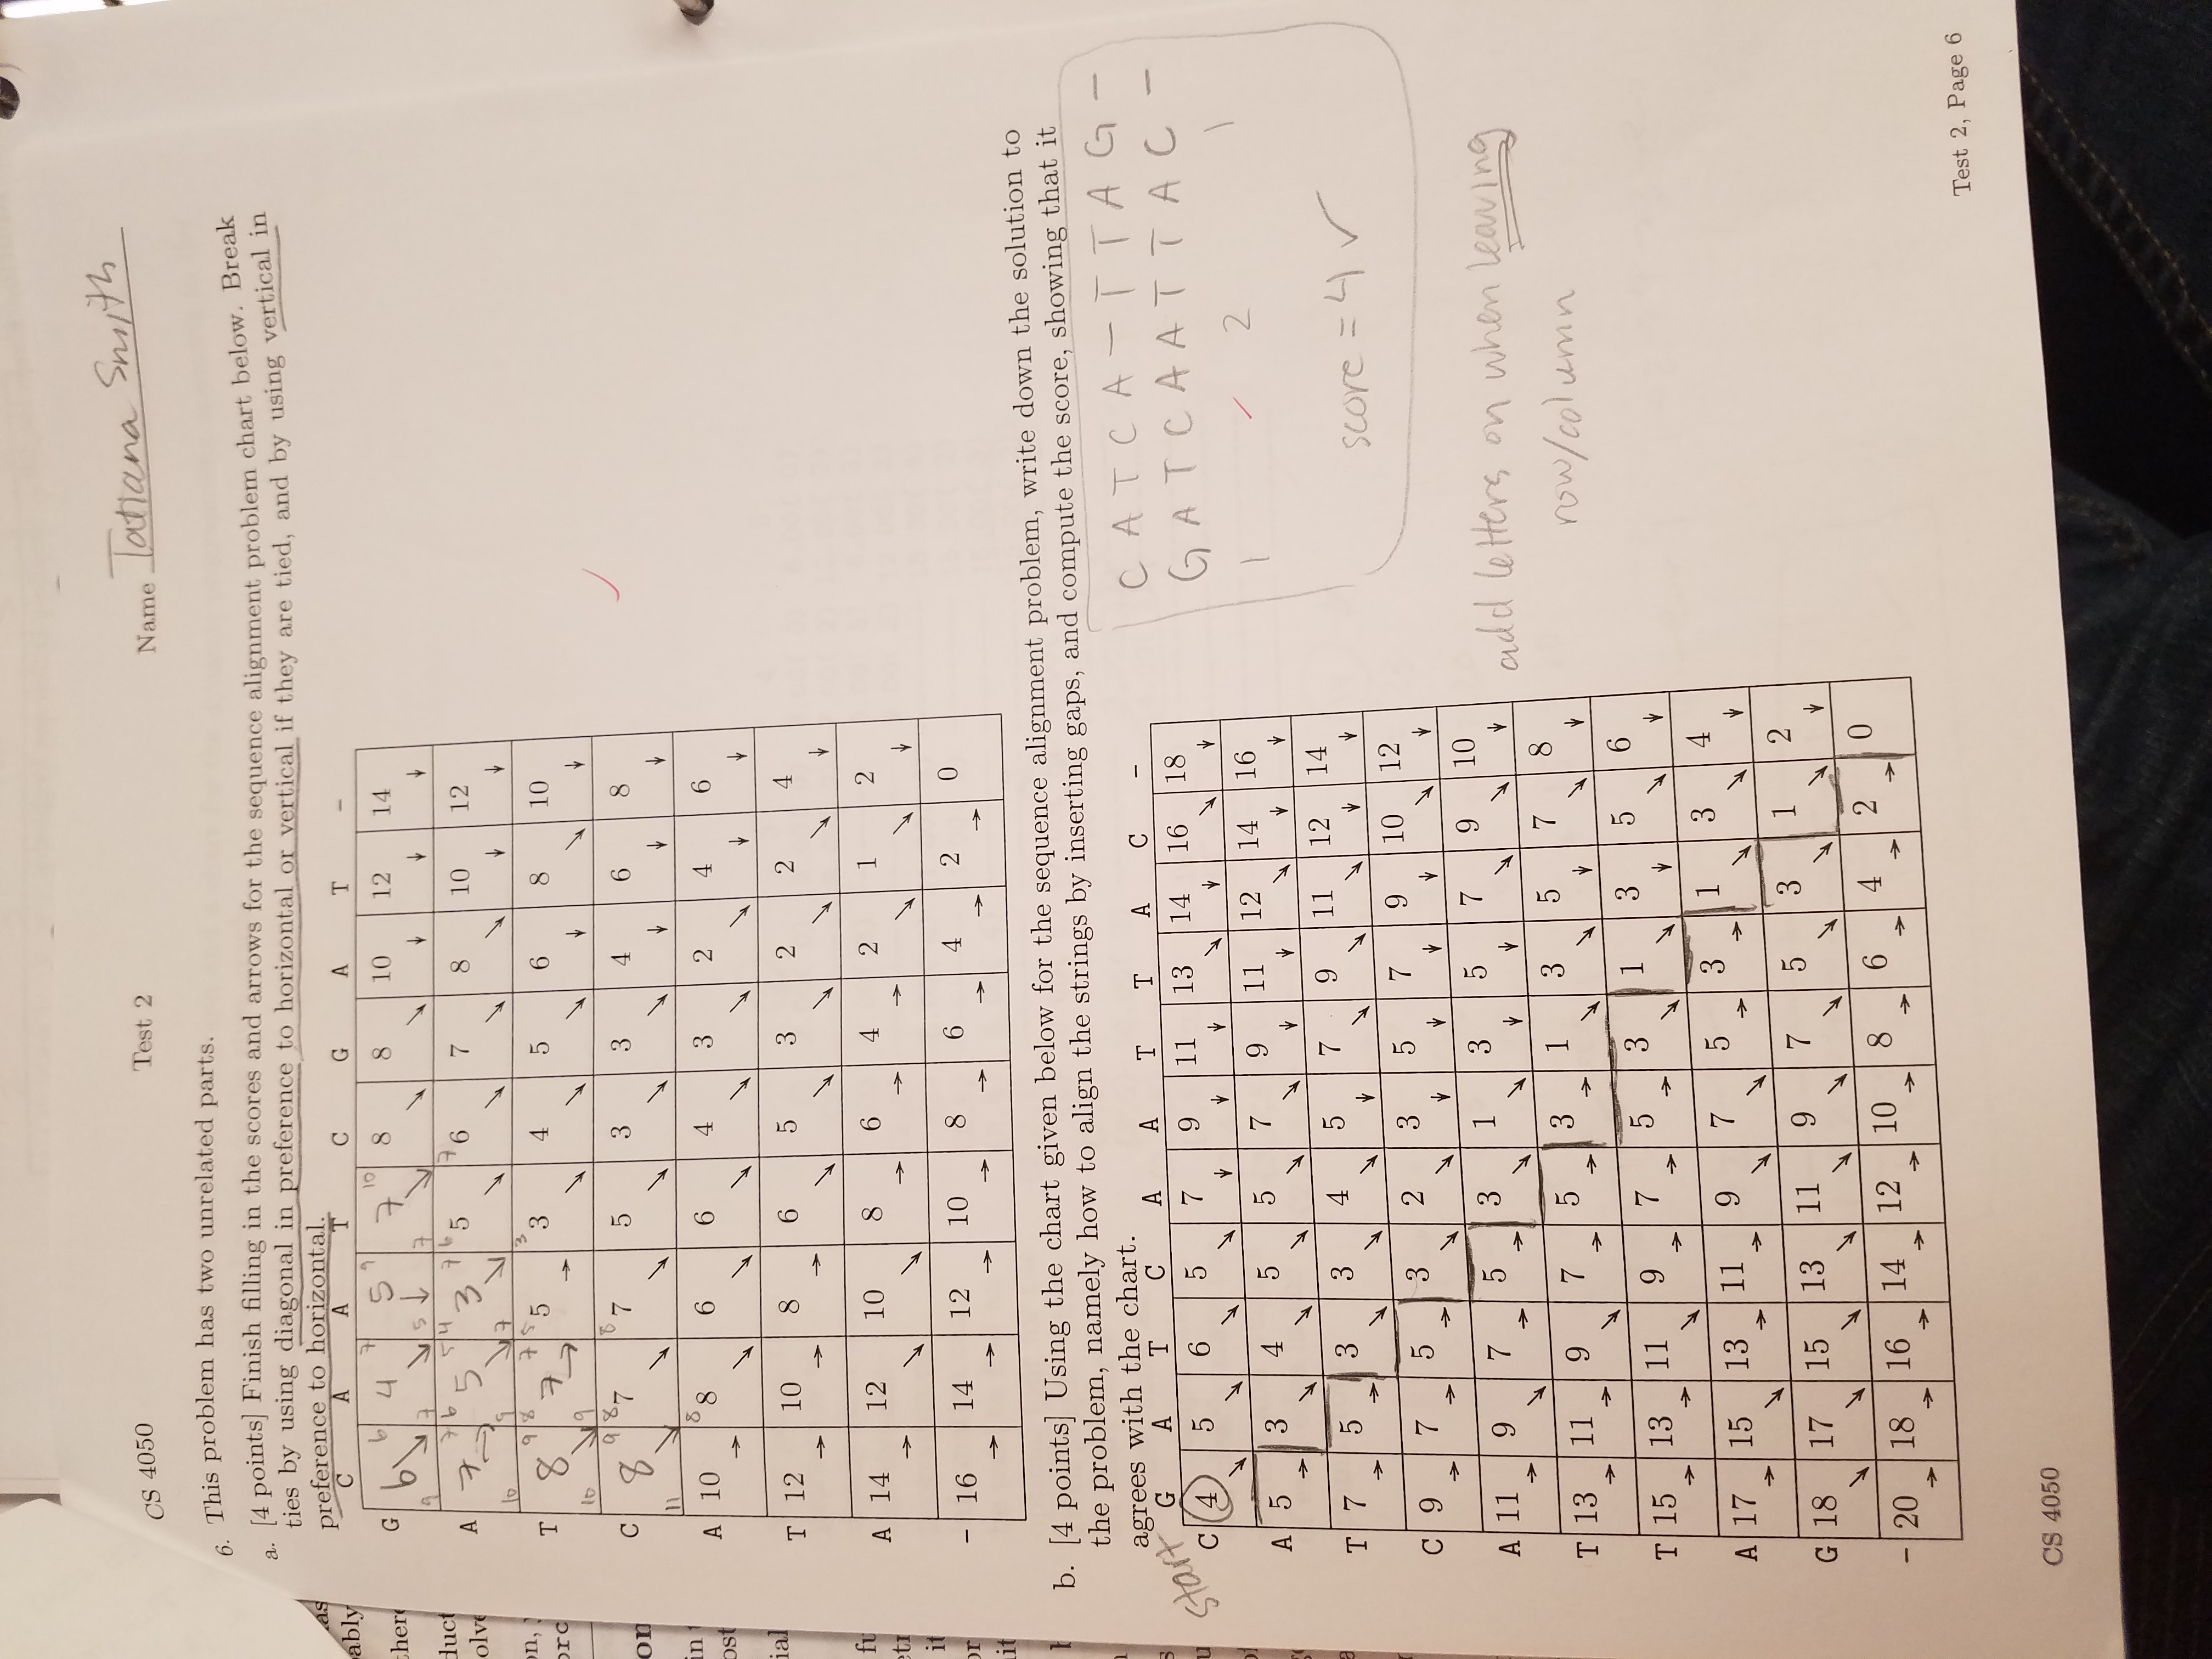 CS 4050 Test 2 Name Tatiana Smith
6. This problem has two unrelated parts.
a. [4 points] Finish filling in the scores and arrows for the sequence alignment problem chart below. Break
ties by using diagonal in preference to horizontal or vertical if they are tied, and by using vertical in
preference to horizontal.
C A A T C G A T –
G 6 6 9 4 7 7 5 9 5 7 10 7 8 8 10 12 14
A 7 7 10 6 5 5 9 4 3 7 7 6 5 7 6 7 8 10 12
T 8 9 10 8 7 7 9 5 5 3 3 4 5 6 8 10
C 8 9 11 8 7 8 7 5 3 3 4 6 8
A 10 8 8 6 6 4 3 2 4 6
T 12 10 8 6 5 3 2 2 4
A 14 12 10 8 6 4 2 1 2
– 16 14 12 10 8 6 4 2 0
b. [4 points] Using the chart given below for the sequence alignment problem, write down the solution to
the problem, namely how to align the strings by inserting gaps, and compute the score, showing that it
agrees with the chart.
start
G A T C A A T T A C –
C 4 5 6 5 7 9 11 13 14 16 18
A 5 3 4 5 5 7 9 11 12 14 16
T 7 5 3 3 4 5 7 9 11 12 14
C 9 7 5 3 2 3 5 7 9 10 12
A 11 9 7 5 3 1 3 5 7 9 10
T 13 11 9 7 5 3 1 3 5 7 8
T 15 13 11 9 7 5 3 1 3 5 6
A 17 15 13 11 9 7 5 3 1 3 4
G 18 17 15 13 11 9 7 5 3 1 2
– 20 18 16 14 12 10 8 6 4 2 0
C A T C A – T T A G –
G A T C A A T T A C –
1 2 1
score = 4 ✓
add letters on when leaving
row/column
Test 2, Page 6
CS 4050